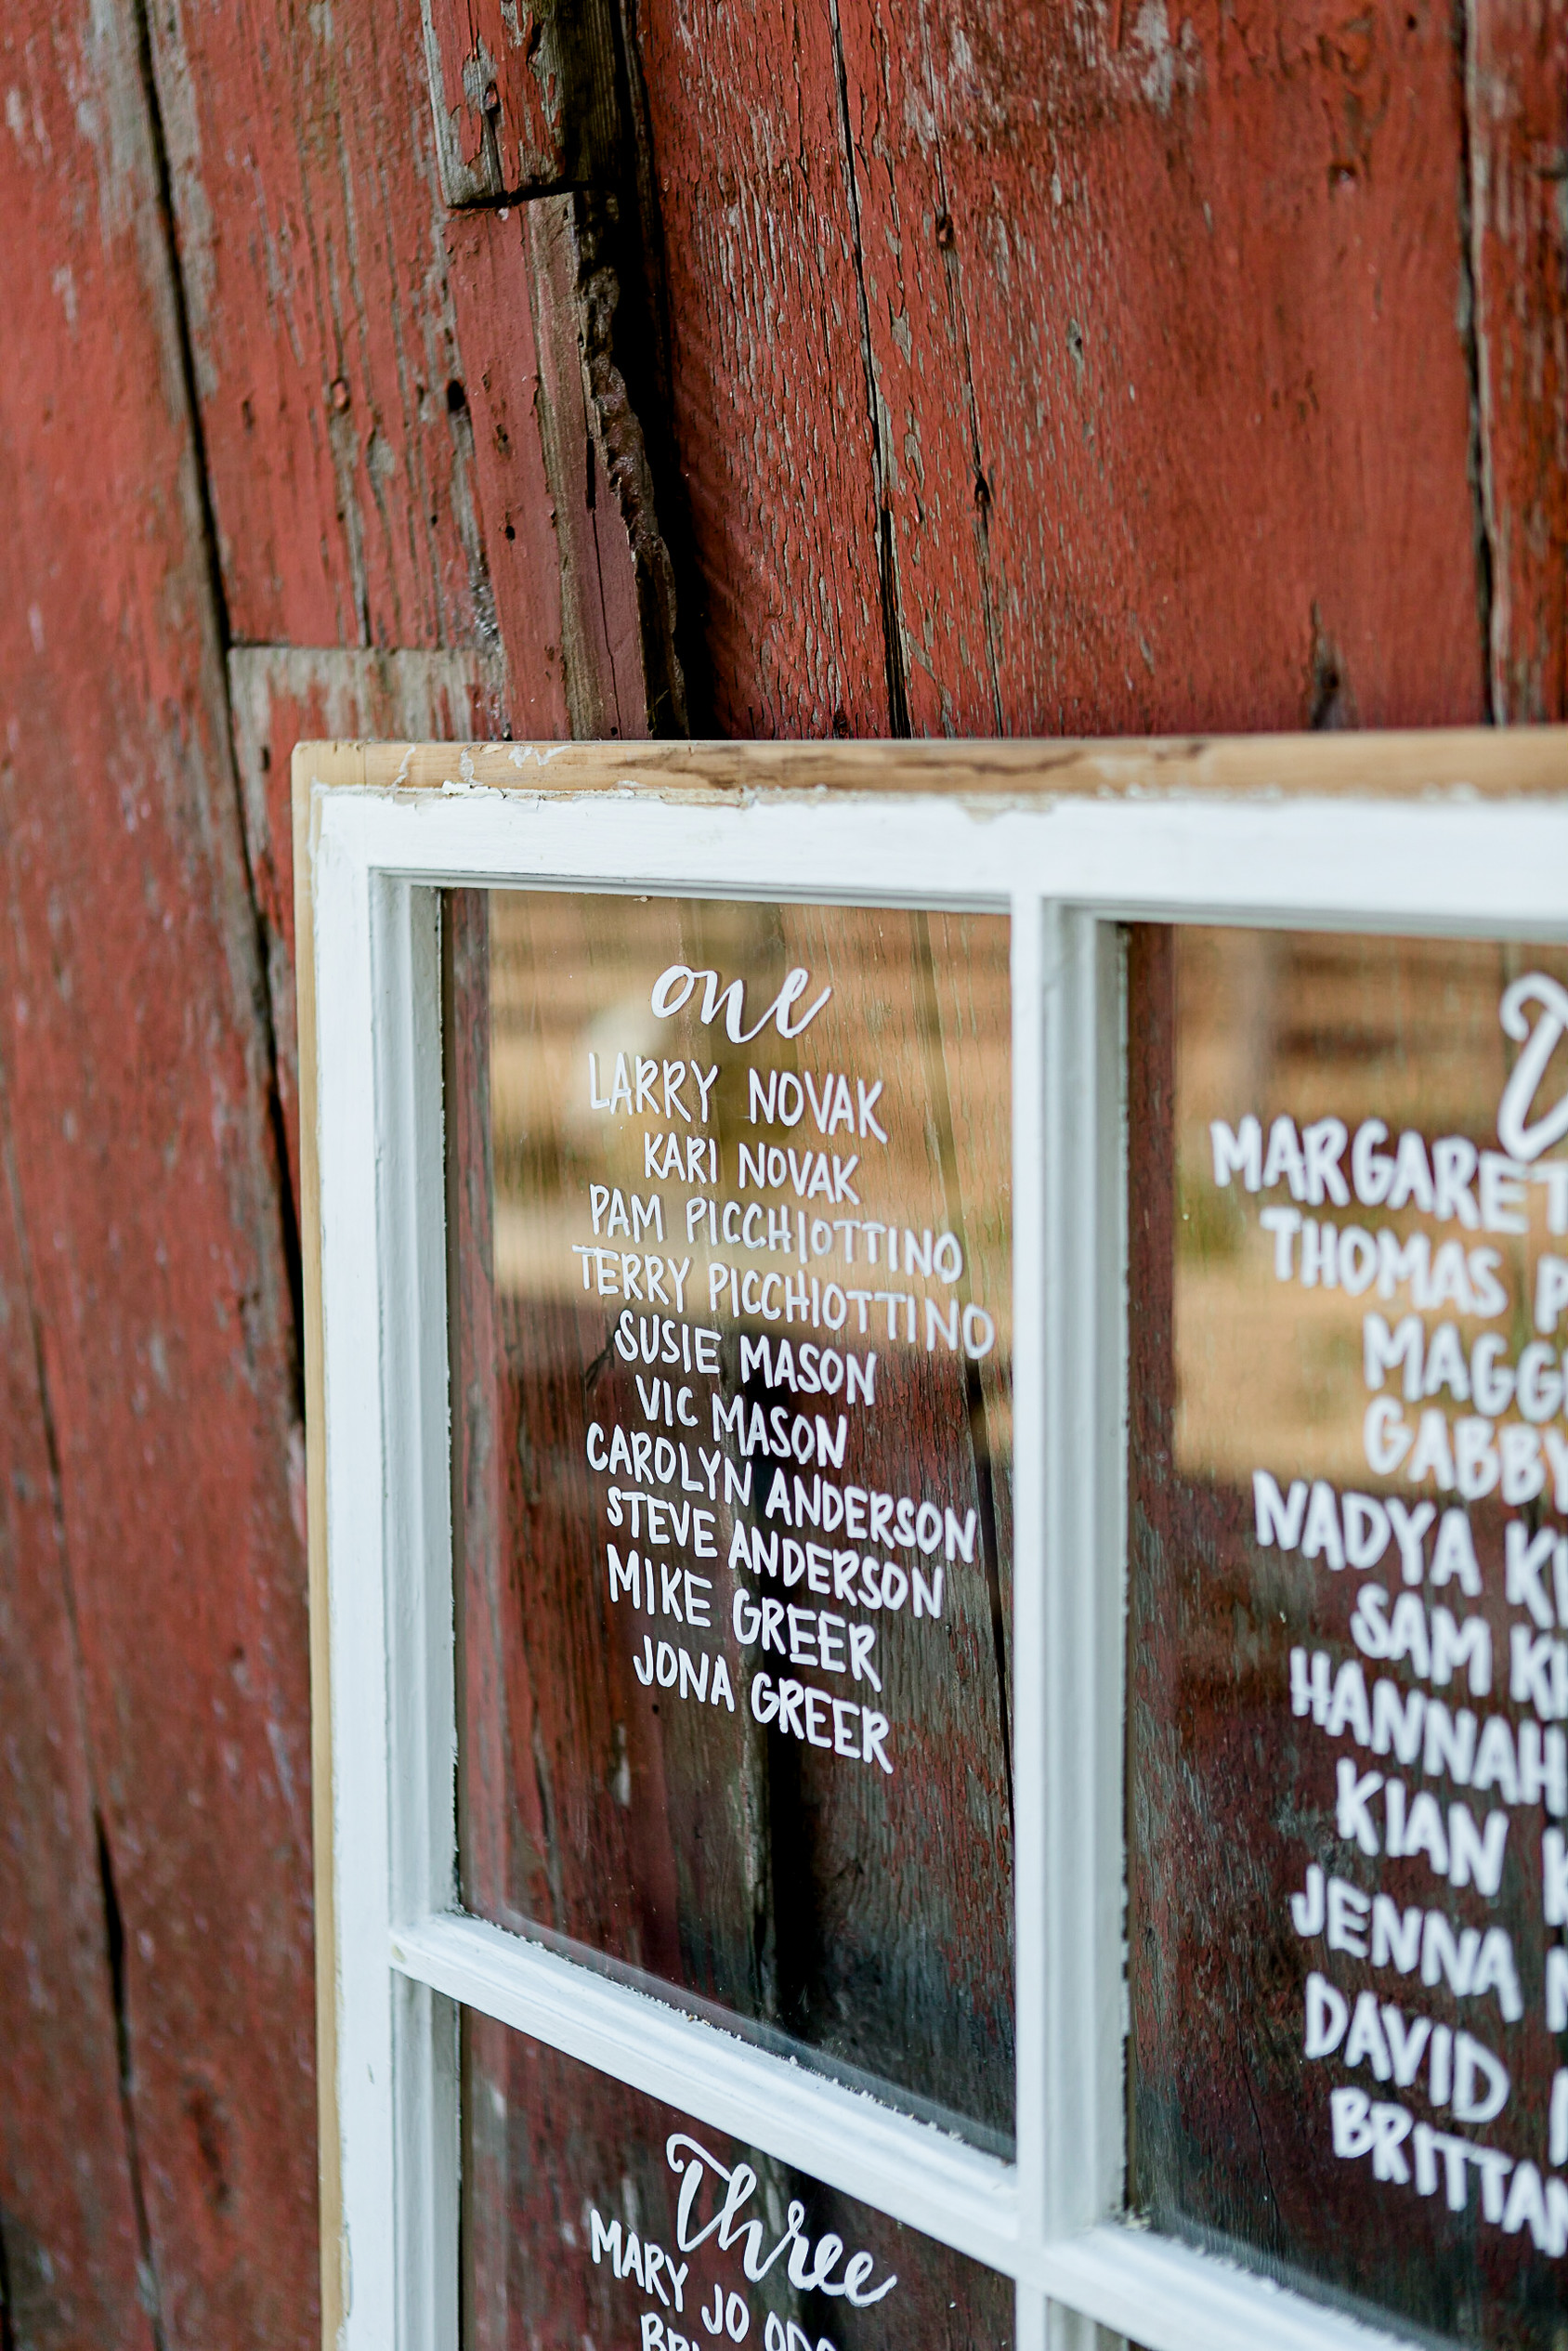 one
LARRY NOVAK
KARI NOVAK
PAM PICCHIOTTINO
TERRY PICCHIOTTINO
SUSIE MASON
VIC MASON
CAROLYN ANDERSON
STEVE ANDERSON
MIKE GREER
JONA GREER
MARGARET
THOMAS
GABBY
NADYA
SAM
HANNAH
KIAN
JENNA
DAVID
Three
MARY JO